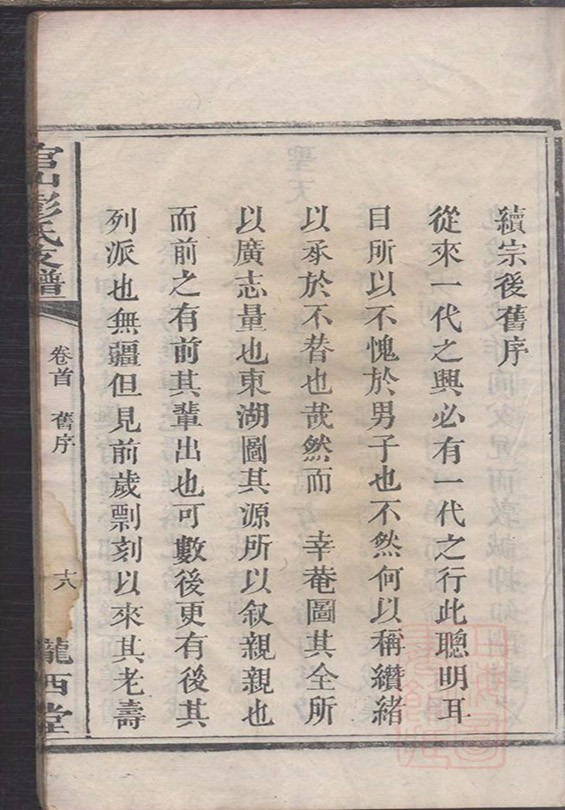 續宗後舊序
從來一代之興必有一代之行此聰明耳
目所以不愧於男子也不然何以稱纘緒
以承於不替也哉然而　幸菴圖其全所
以廣志量也東湖圖其源所以叙親親也
而前之有前其輩出也可數後更有後其
列派也無疆但見前歲剽刻以來其老壽
官山彭氏支譜
卷首　舊序
十六
隴西堂